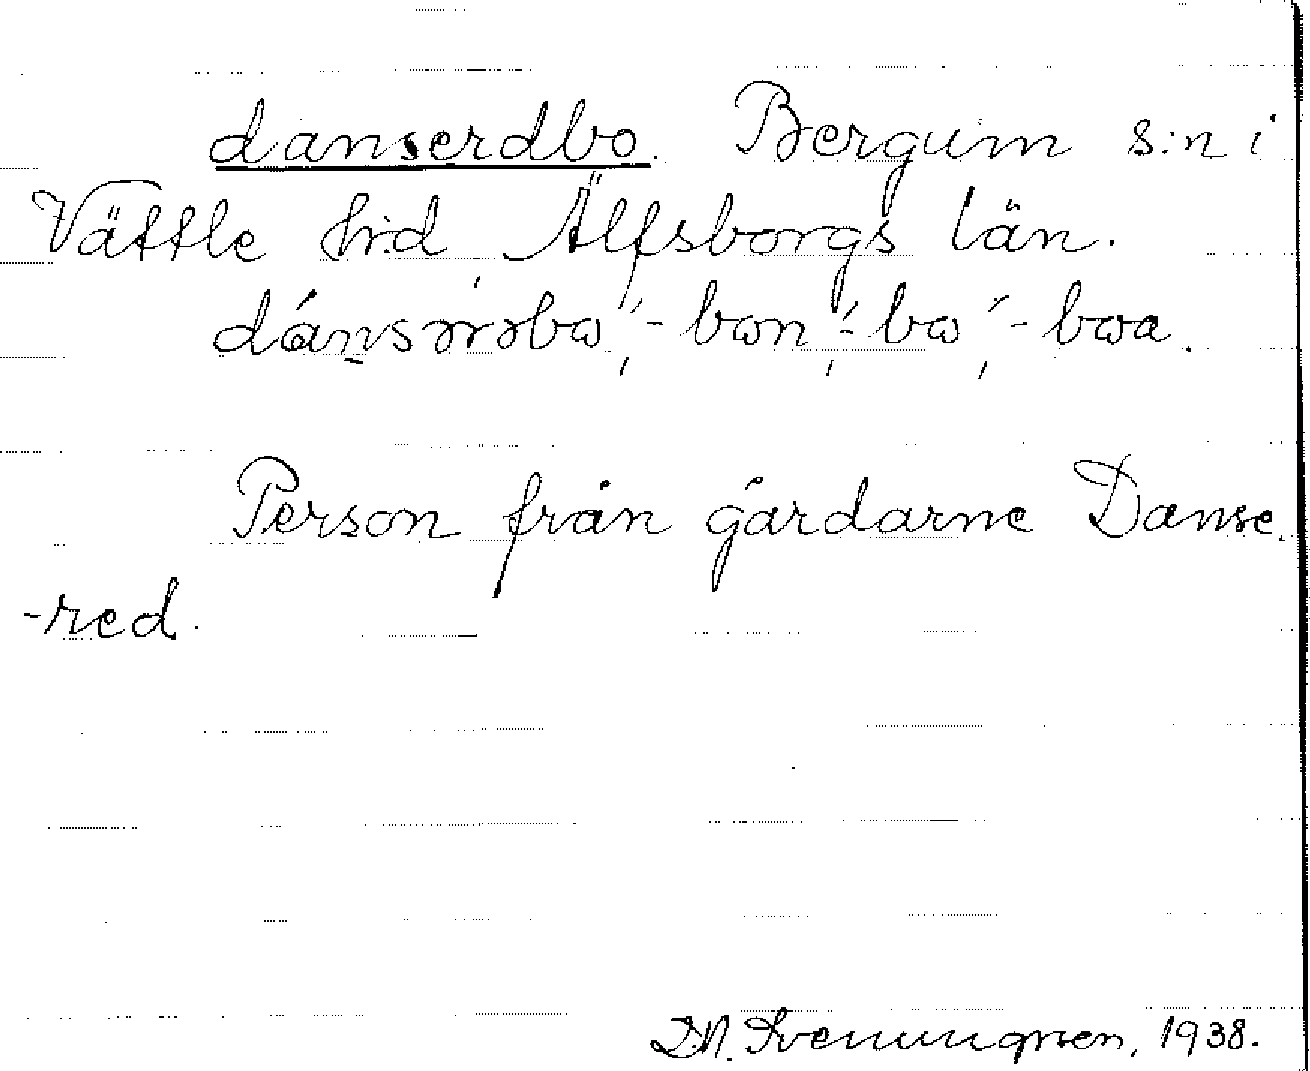 danserdbo. Bergum s:n i
Vättle h:d, Älfsborgs län.
dánsərəbω, ́-bωn, ́-bω, ́-bωa.
Person från gårdarne Danse
-red.
Svenungsson, 1938.